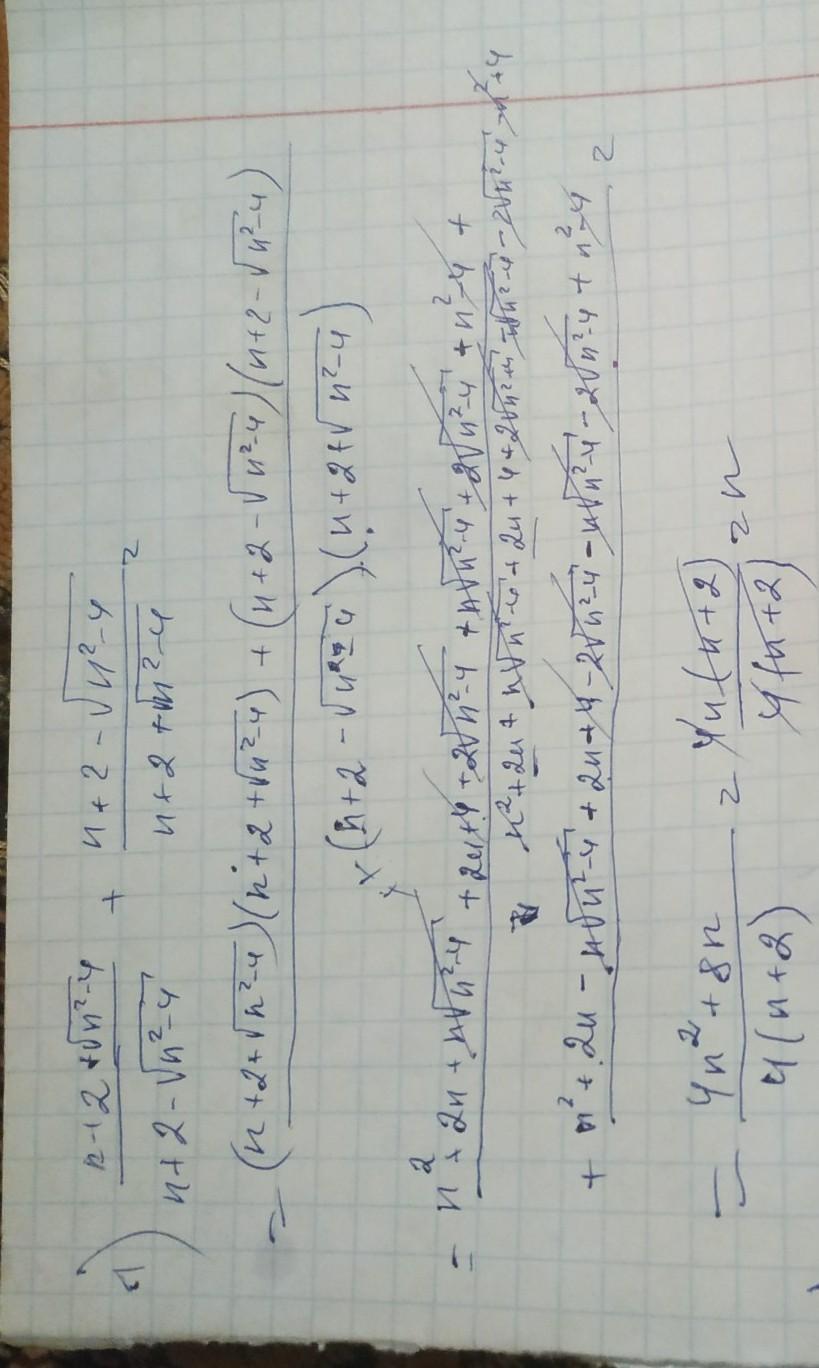 б) n+2+√n²-4 / n+2-√n²-4 + n+2-√n²-4 / n+2+√n²-4 =
= (n+2+√n²-4)(n+2+√n²-4) + (n+2-√n²-4)(n+2-√n²-4)
(n+2-√n²-4)(n+2+√n²-4)
= n²+2n+n√n²-4 + 2n+4+2√n²-4 + n√n²-4 + 2√n²-4 + n²-4 +
n²+2n+n√n²-4+2n+4+2√n²-4-n√n²-4-2√n²-4-n²+4
+ n²+2n-n√n²-4+2n+4-2√n²-4-n√n²-4-2√n²-4+n²-4 =
= 4n²+8n / 4(n+2) = 4n(n+2) / 4(n+2) = n